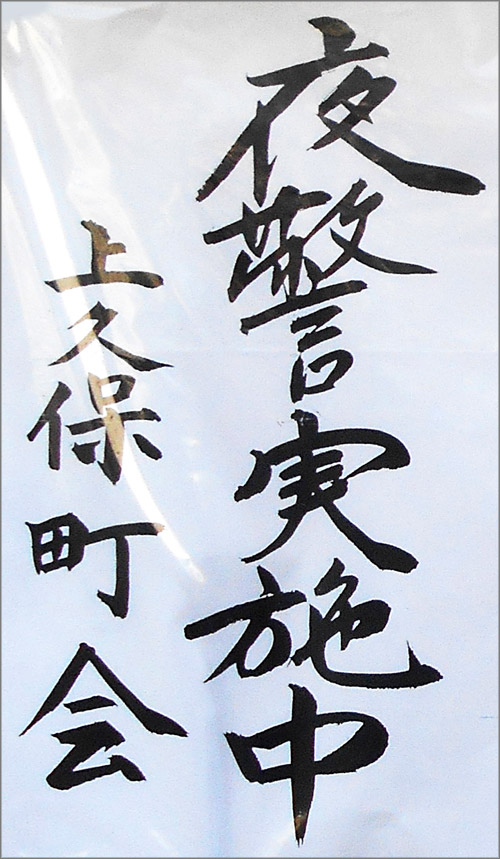 夜警実施中
上久保町会